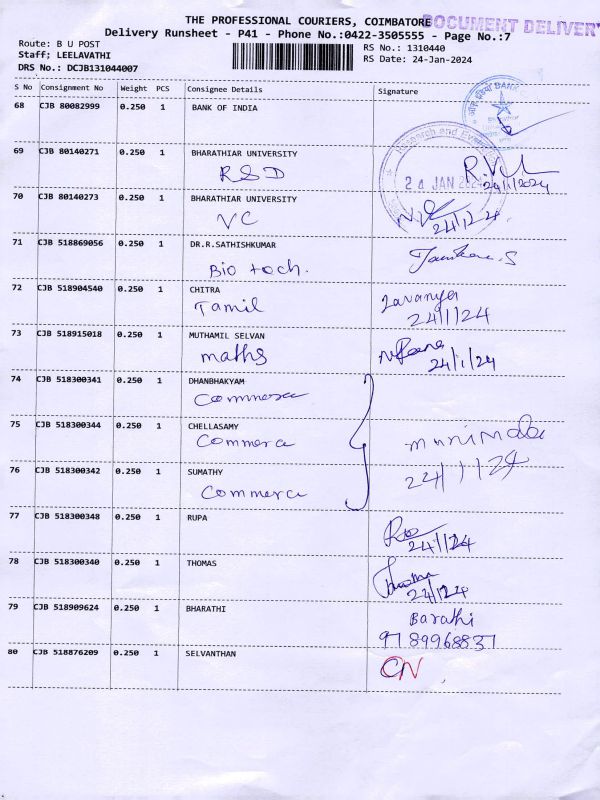 THE PROFESSIONAL COURIERS, COIMBATORE
DOCUMENT DELIVERY
Delivery Runsheet - P41 - Phone No.:0422-3505555 - Page No.:7
Route: B U POST
RS No.: 1310440
Staff; LEELAVATHI
RS Date: 24-Jan-2024
DRS No.: DCJB131044007
S No Consignment No Weight PCS Consignee Details Signature
68 CJB 80082999 0.250 1 BANK OF INDIA
69 CJB 80140271 0.250 1 BHARATHIAR UNIVERSITY
RSD
24 JAN 2024
24/1/2024
70 CJB 80140273 0.250 1 BHARATHIAR UNIVERSITY
VC
24/1/24
71 CJB 518869056 0.250 1 DR.R.SATHISHKUMAR
Bio tech.
72 CJB 518904540 0.250 1 CHITRA
Tamil
Lavanya
24/1/24
73 CJB 518915018 0.250 1 MUTHAMIL SELVAN
maths
24/1/24
74 CJB 518300341 0.250 1 DHANBHAKYAM
Commerce
75 CJB 518300344 0.250 1 CHELLASAMY
Commerce
24/1/24
76 CJB 518300342 0.250 1 SUMATHY
Commerce
77 CJB 518300348 0.250 1 RUPA
24/1/24
78 CJB 518300340 0.250 1 THOMAS
24/1/24
79 CJB 518909624 0.250 1 BHARATHI
Barathi
9789968837
80 CJB 518876209 0.250 1 SELVANTHAN
CN